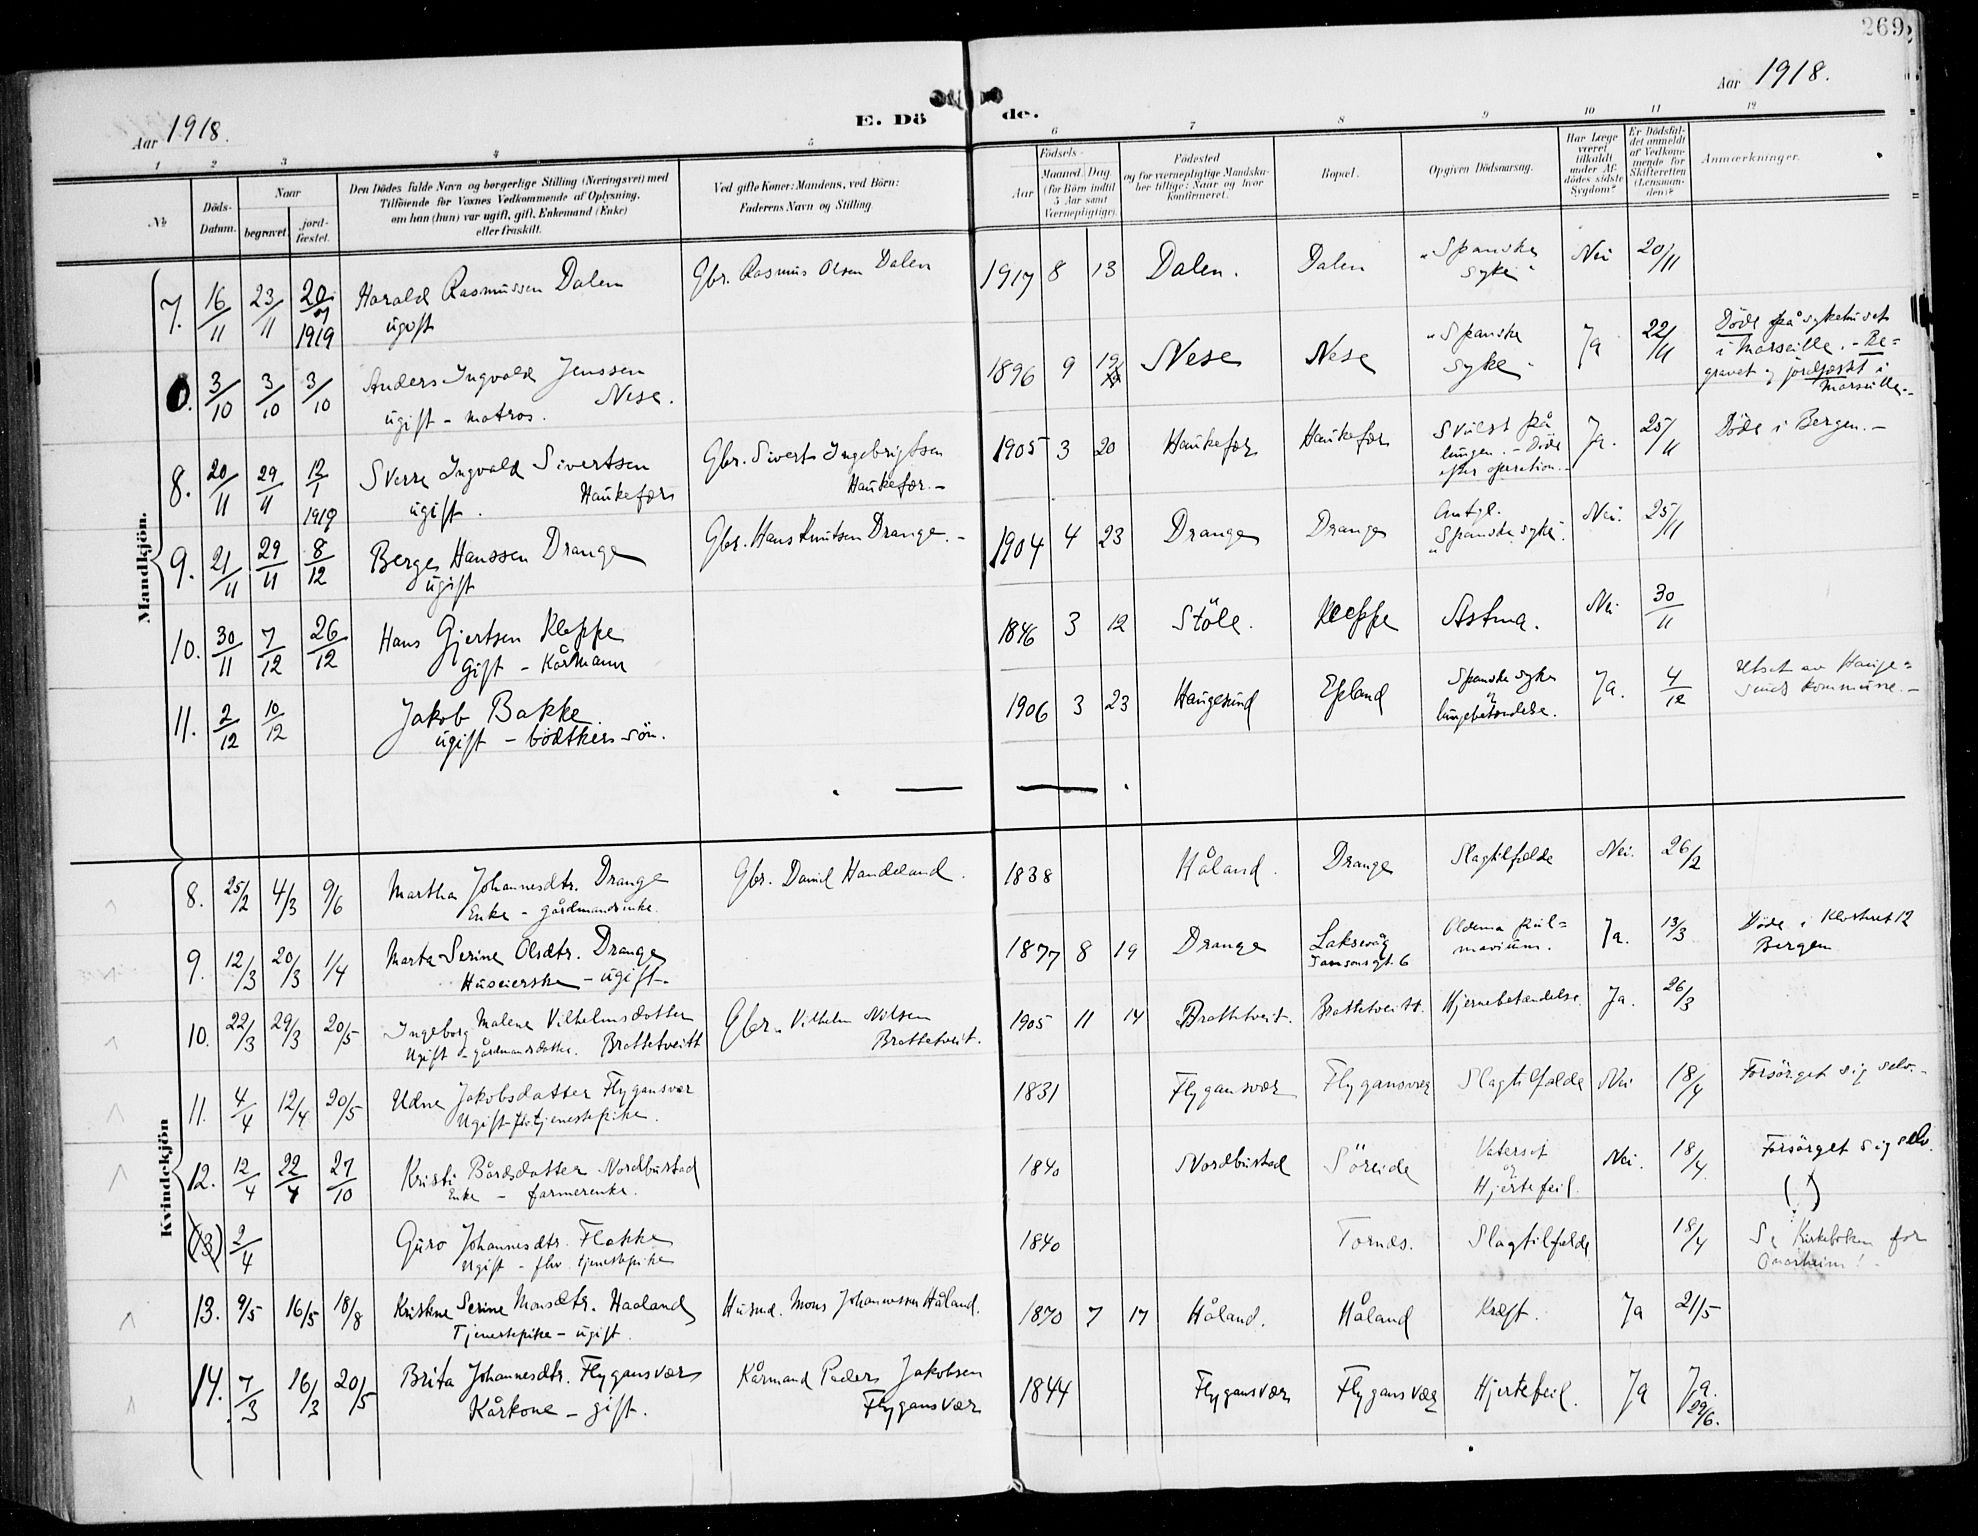 269
Aar 1918.
E. Döde.
Aar 1918.
1 2 3 4 5 6 7 8 9 10 11 12
No
Döds-Datum.
Naar
begravet.
jord-fæstet.
Den Dödes fulde Navn og borgerlige Stilling (Næringsvei) med
Tilföiende for Voxnes Vedkommende af Oplysning,
om han (hun) var ugift, gift, Enkemand (Enke)
eller fraskilt.
Ved gifte Koner: Mandens, ved Börn:
Faderens Navn og Stilling.
Födsels-
Aar
Maaned. Dag
(for Börn indtil
5 Aar samt
Værnepligtige).
Födested
og for værnepligtige Mandska-
ber tillige: Naar og hvor
konfirmeret.
Bopæl.
Opgiven Dödsaarsag.
Har Læge
været
tilkaldt
under Af-
dödes sidste
Sygdom?
Er Dödsfal-
det anmeldt
af Vedkom-
mende for
Skifteretten
(Lensman-
den)?
Anmærkninger.
Mandkjön.
7. 16/11 23/11 20/7 1919 Harald Rasmussen Dalen Gbr. Rasmus Olsen Dalen 1917 8 13 Dalen. Dalen "Spanske Nei 20/11
ugift syke"
0. 3/10 3/10 3/10 Anders Ingvald Jenssen 1896 9 19 Nese Nese "Spanske Ja 22/11 Döde på sykehuset
Nese. syke" i Marseille. - Be-
ugift - matros. gravet og jordfæstet i
Marseille.-
8. 20/11 29/11 12/1 1919 Sverre Ingvald Sivertsen Gbr. Sivert Ingebrigtsen 1905 3 20 Haukefær Haukefær Svulst på Ja. 25/11 Döde i Bergen.-
Haukefær Haukefær.- lungen. - Döde
ugift. efter operation.-
9. 21/11 29/11 8/12 Berge Hanssen Drange Gbr. Hans Knutsen Drange.- 1904 4 23 Drange Drange Antgl. Nei. 25/11
ugift "Spanske syke".
10. 30/11 7/12 26/12 Hans Gjertsen Kleppe 1846 3 12 Stöle. Kleppe Astma. Nei 30/11
gift - Kårmann
11. 2/12 10/12 Jakob Bakke 1906 3 23 Haugesund Epland Spanske syke Ja. 4/12 Utsat av Hauge-
ugift - bödtkers sön. og lungebetændelse. sunds kommune.-
Kvindekjön
8. 25/2 4/3 9/6 Martha Johannesdtr. Drange Gbr. Daniel Handeland. 1838 Håland. Drange Slagtilfælde Nei. 26/2
Enke - gårdmandsenke.
9. 12/3 20/3 1/4 Marta Serine Olsdtr. Drange 1877 8 19 Drange Laksevåg Oldema pul- Ja. 13/3 Döde i Klostret 12
Huseierske - ugift. Damsgt. 6 monium. Bergen
10. 22/3 29/3 20/5 Ingeborg Malene Vilhelmsdatter Gbr. Vilhelm Nilsen 1905 11 14 Brattetveit. Brattetveitt. Hjernebetændelse. Ja. 26/3
Ugift - gårdmandsdatter. Brattetveitt Brattetveit.
11. 4/4 12/4 20/5 Udne Jakobsdatter Flygansvær 1831 Flygansvær Flygansvær Slagtilfælde Nei 18/4 Forsörget sig selv.-
Ugift - tjenestepike.
12. 12/4 22/4 27/10 Kristi Bårdsdatter Nordbustad 1840 Nordbustad Söreide Vatersot Nei. 18/4 Forsörget sig selv.
Enke - farmerenke. og Hjertefeil. (?)
(13) 2/4 Guro Johannesdtr. Flakke 1840 Tornes. Slagtilfælde 18/4 Se Kirkeboken for
Ugift - fhv. tjenestepike Qvarheim!
13. 9/5 16/5 18/8 Kristine Serine Monsdtr. Haaland Husmd. Mons Johannessen Håland. 1870 7 17 Håland. Håland Kræft. Ja 21/5
Tjenestepike - ugift.
14. 7/3 16/3 20/5 Brita Johannesdtr. Flygansvær Kårmand Peder Jakobsen 1844 Flygansvær Flygansvær Hjertefeil. Ja Ja.
Kårkone - gift. Flygansvær 29/6.